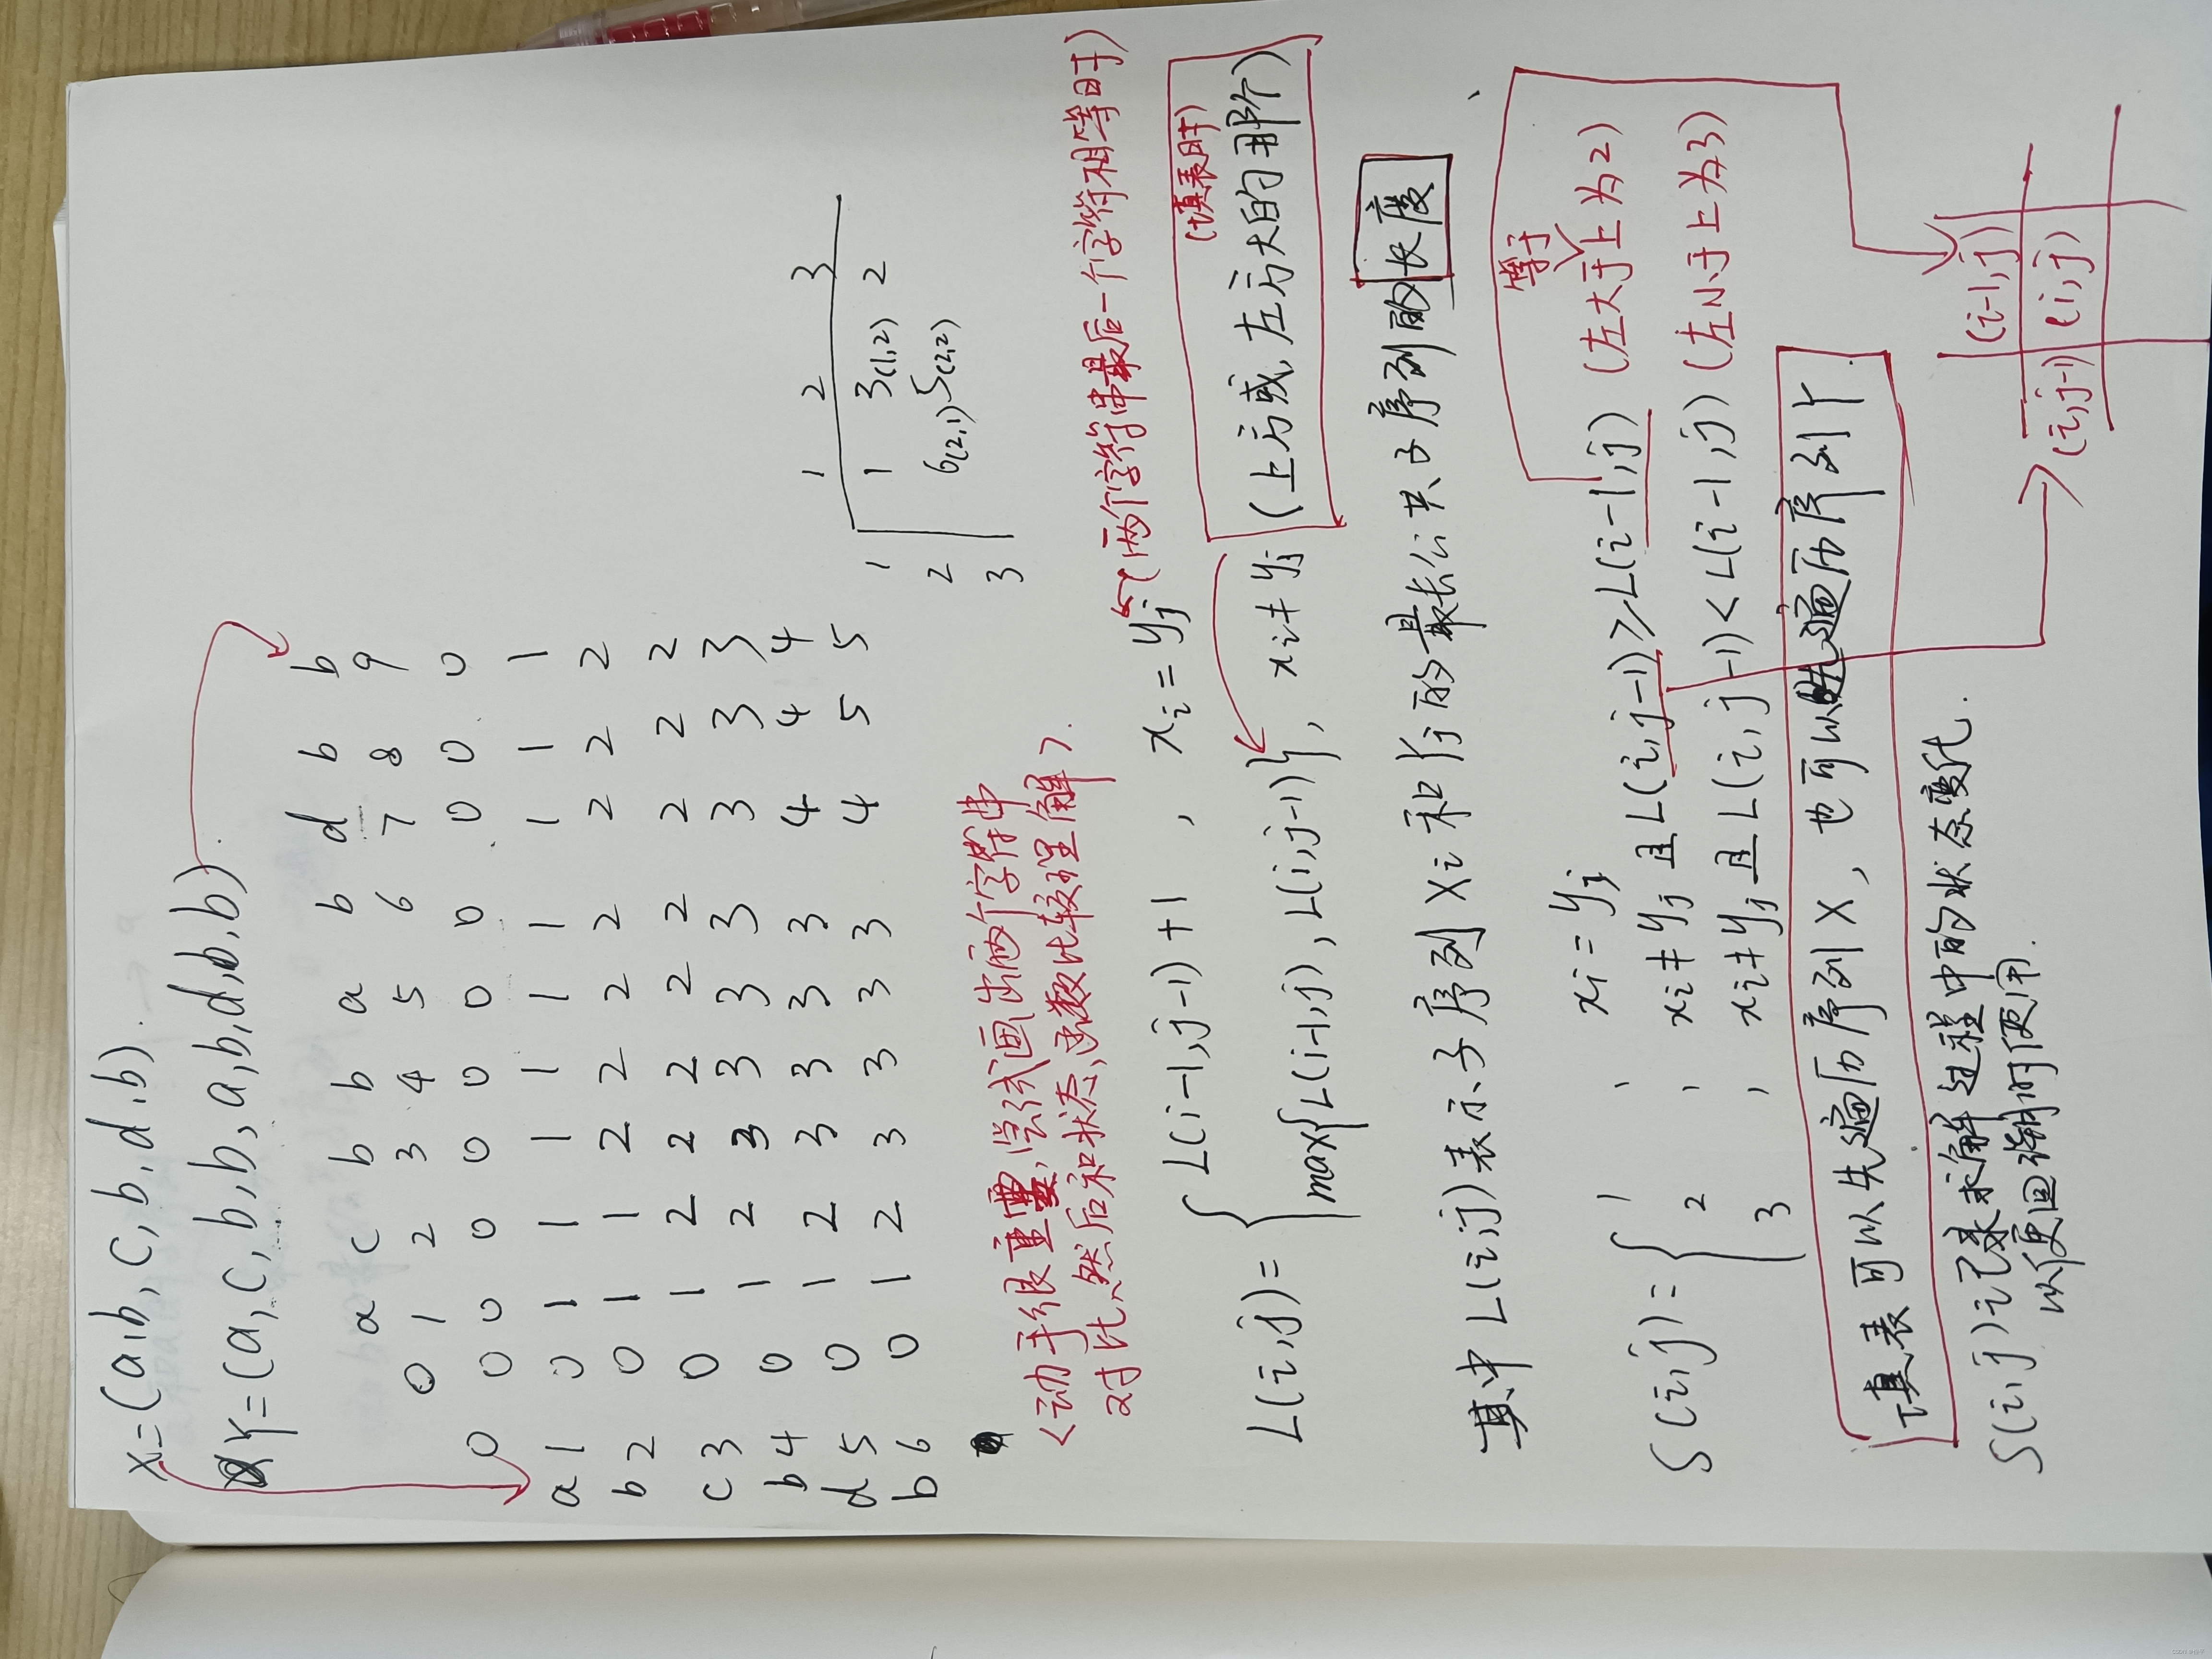 X=(a,b,c,b,d,b).
Y=(a,c,b,b,a,b,d,b,b).
a c b b a b d b b
0 1 2 3 4 5 6 7 8 9
0 0 0 0 0 0 0 0 0 0 0
a 1 0 1 1 1 1 1 1 1 1 1
b 2 0 1 1 2 2 2 2 2 2 2
c 3 0 1 2 2 2 2 2 2 2 2
b 4 0 1 2 3 3 3 3 3 3 3
d 5 0 1 2 3 3 3 3 4 4 4
b 6 0 1 2 3 3 3 3 4 5 5
1 2 3
1 1 3(1,2) 2
2 6(2,1) 5(2,2)
3
<动手很重要,尝试画出两个字符串
对比,然后和状态,函数比较理解>.
L(i,j)={ L(i-1,j-1)+1 , xi=yj (两个字符串最后一个字符相等时)
max{L(i-1,j),L(i,j-1)}, xi≠yj (上方或左方大的那个)
(填表时)
其中L(i,j)表示子序列Xi和Yj的最长公共子序列的长度
S(i,j)={ 1 , xi=yj
等于
2 , xi≠yj且L(i,j-1)≥L(i-1,j) (左大于上为2)
3 , xi≠yj且L(i,j-1)<L(i-1,j) (左小于上为3)
填表可以先遍历序列X,也可以先遍历序列Y.
S(i,j)记录求解过程中的状态变化.
以便回溯时使用.
(i-1,j)
(i,j-1) (i,j)